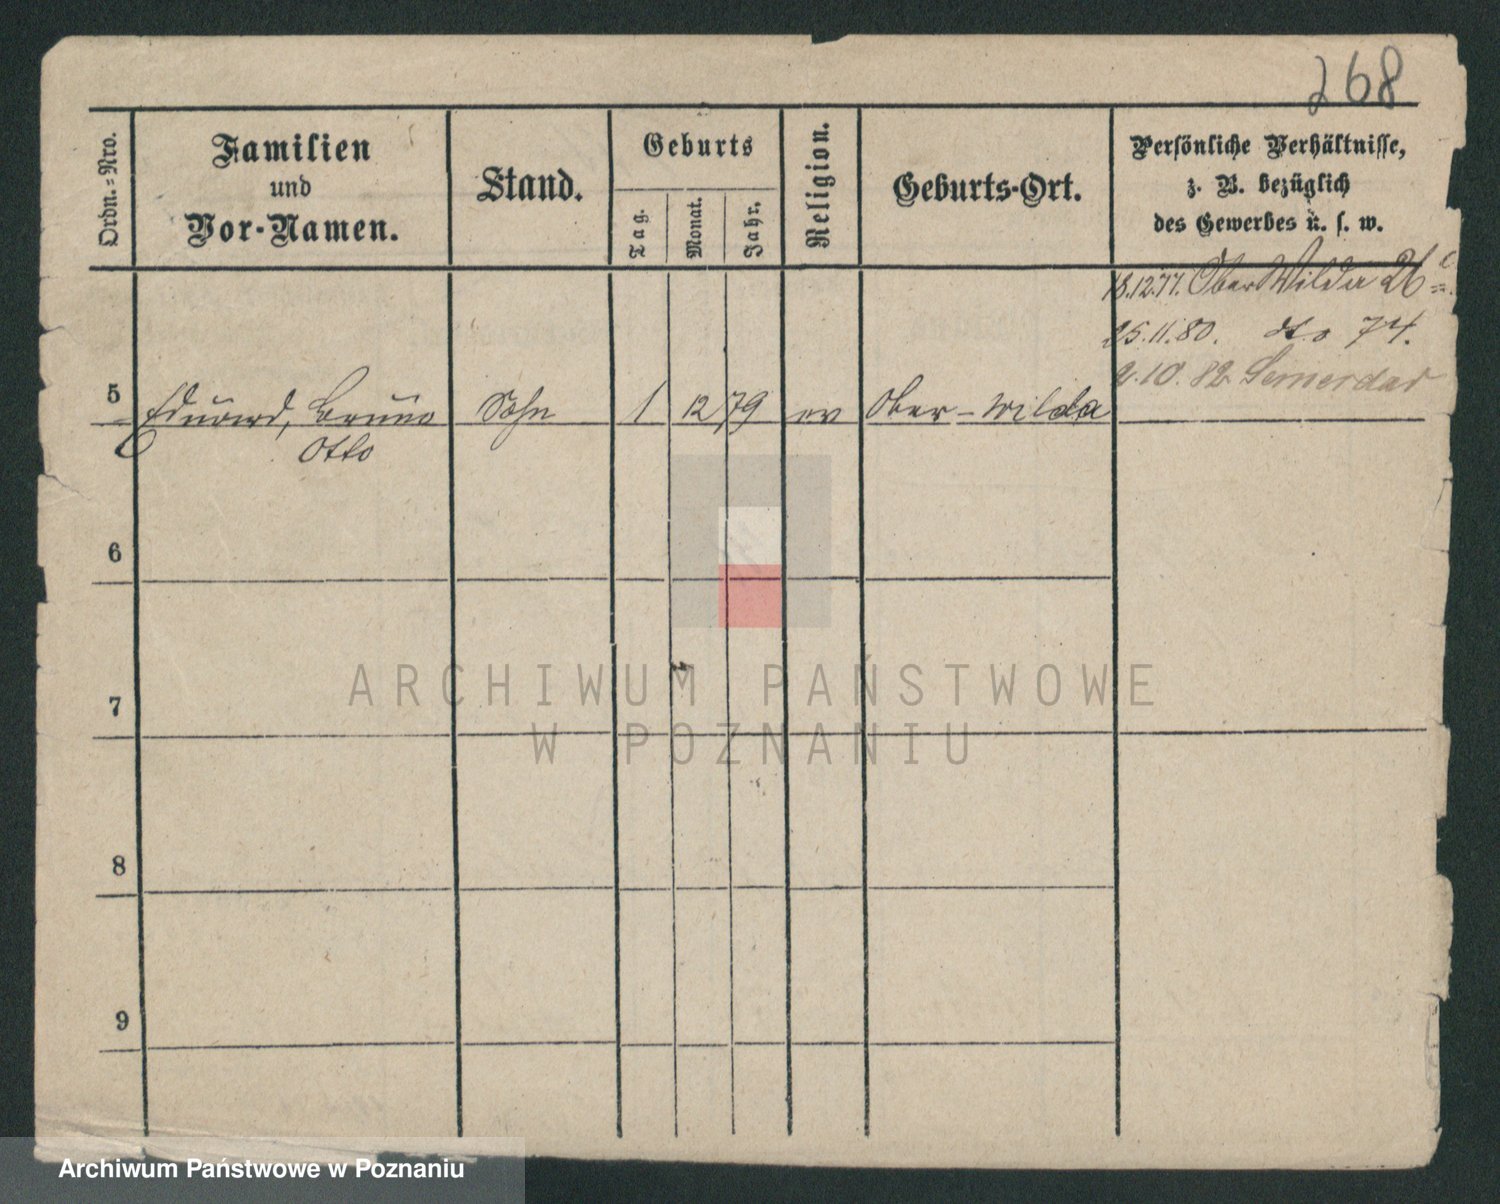 268
Ordn.-Nro.
Familien
und
Vor-Namen.
Stand.
Geburts
Tag.
Monat.
Jahr.
Religion.
Geburts-Ort.
Persönliche Verhältnisse,
z. B. bezüglich
des Gewerbes u. s. w.
18.12.77. Ober Wilda 26
25.11.80. dto 74.
2.10.82.
5 Eduard, Bruno Sohn 1 12 79 ev Ober-Wilda
Otto
6
7
8
9
ARCHIWUM PAŃSTWOWE
W POZNANIU
Archiwum Państwowe w Poznaniu